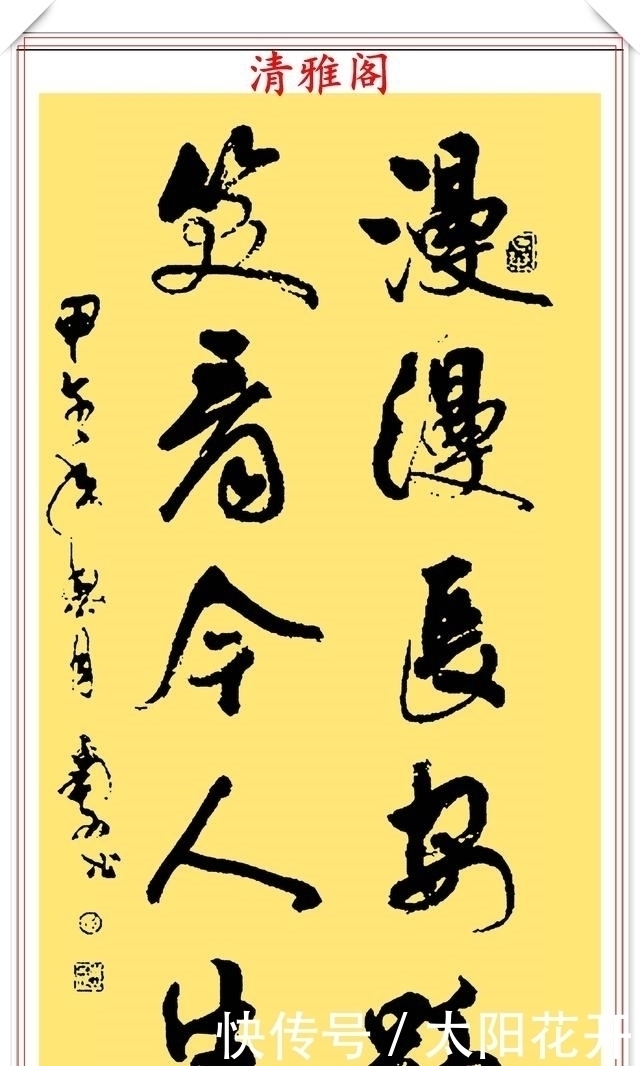 清雅阁
漫漫長安路
笑看今人生
甲午
月
快传号 / 太阳花开